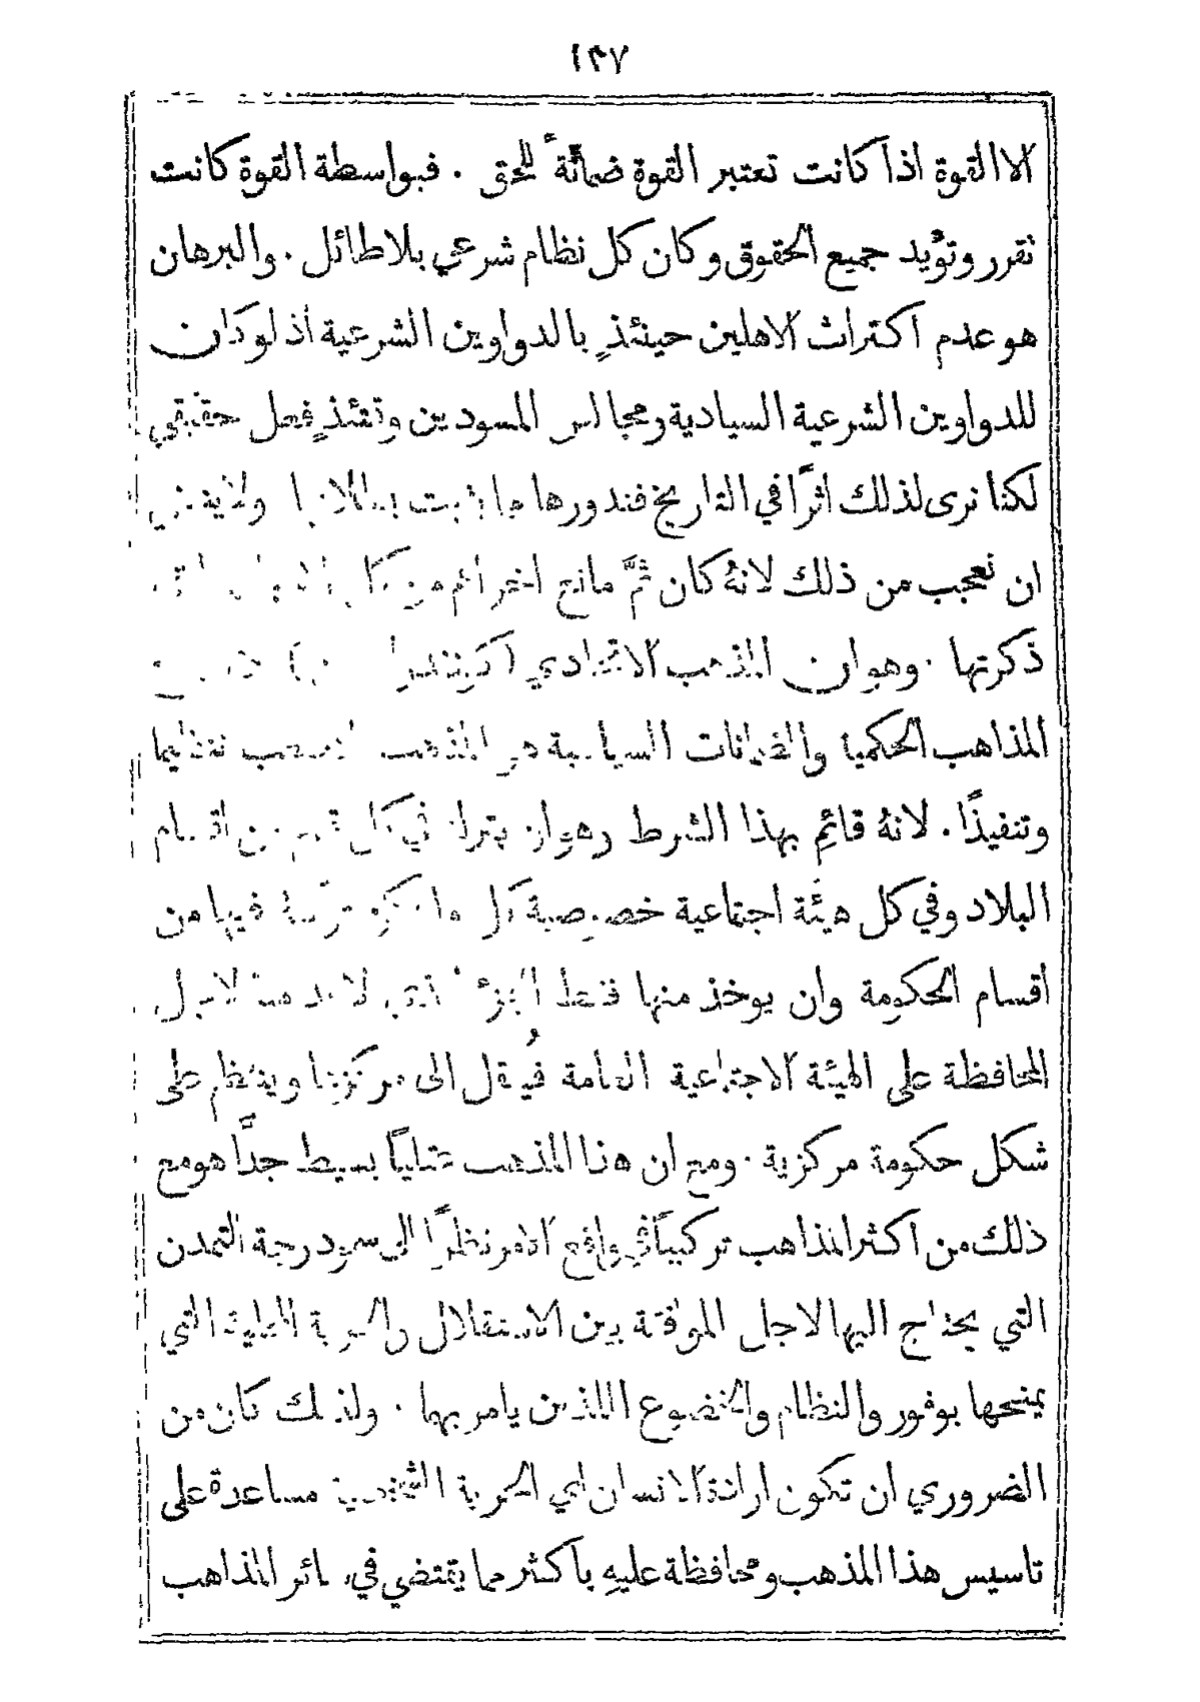 ١٣٧
الا القوة اذا كانت تعتبر القوة ضمانةً للحق . فبواسطة القوة كانت
تقرر وتؤيد جميع الحقوق وكان كل نظام شرعي بلا طائل . والبرهان
هو عدم اكتراث الاهلين حينئذٍ بالدواوين الشرعية اذ لو كان
للدواوين الشرعية السيادية ومجالس المسودين وقتئذٍ فعل حقيقي
لكنا نرى لذلك اثرًا في التاريخ فندورها
ان نعجب من ذلك لانهُ كان ثمَّ مانع اخر اعم من
ذكرتها . وهو ان المذهب الاتحادي
المذاهب الحكمية والضمانات السياسية هو المذهب الاصعب تنظيما
وتنفيذًا . لانهُ قائم بهذا الشرط وهو ان يترك في كل قسم من اقسام
البلاد وفي كل هيئَة اجتماعية خصوصية كل ما يمكن فيها من
اقسام الحكومة وان يوخذ منها فقط الجزء الذي لا بد منهُ لاجل
المحافظة على الهيئة الاجتماعية العامة فيُنقل الى مركزها وينظم على
شكل حكومة مركزية . ومع ان هذا المذهب عقليًا بسيط جدًّا هو مع
ذلك من اكثر المذاهب تركيبًا في واقع الامر نظرًا الى سمو درجة التمدن
التي يحتاج اليها لاجل الموافقة بين الاستقلال والحرية المحلية التي
يمنحها بوفور والنظام والخضوع اللذين يامر بهما . ولذلك كان من
الضروري ان تكون ارادة الانسان اي الحرية الشخصية مساعدة على
تاسيس هذا المذهب ومحافظة عليهِ باكثر مما يقتضي في سائر المذاهب